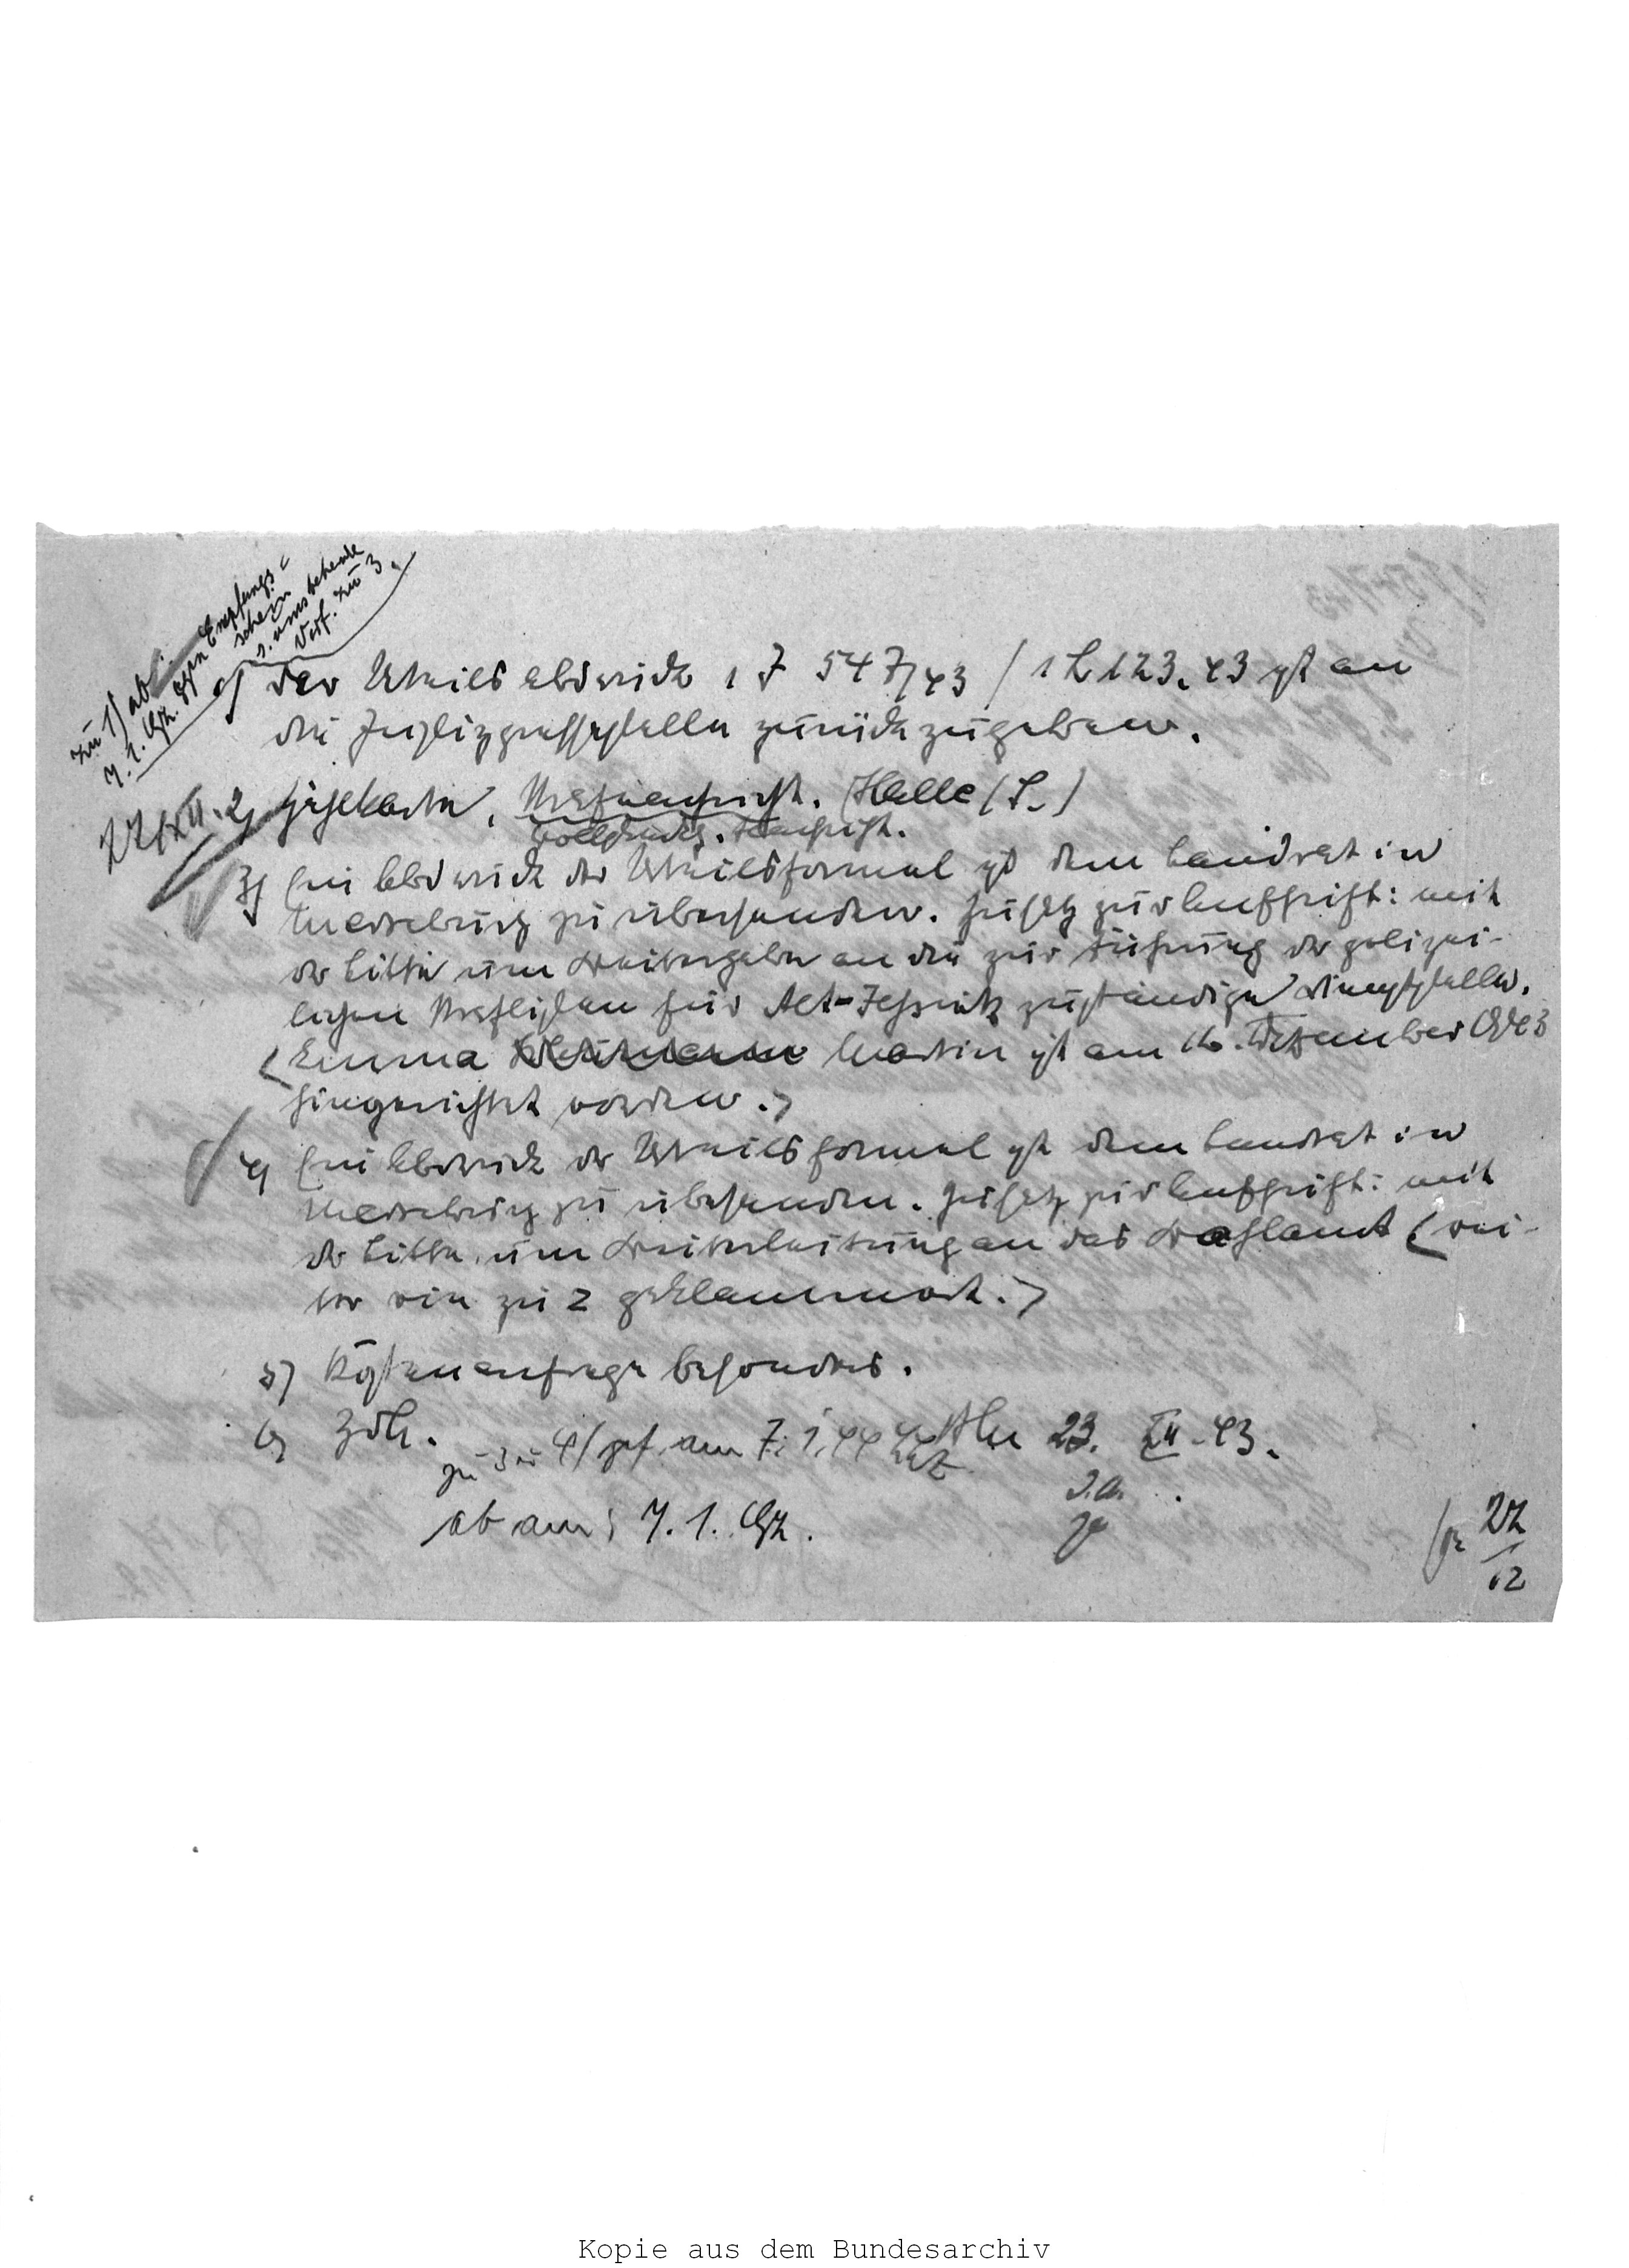 zu 1) ab
Empfangs=
schein
s. umstehende
Verf. zu 3.
der Urteilsabdruck 1 J 547/43 / 1 L 123.43 ist an
die Justizpressestelle zurückzugeben.
2) Zählkarte, Strafnachricht. Halle (S.)
3) Ein Abdruck der Urteilsformel ist dem Landrat in
Merseburg zu übersenden. Zusatz zur Aufschrift: mit
der Bitte um Weitergabe an die zur Führung der polizei-
lichen Straflisten für Alt-Jessnitz zuständige Dienststelle.
(Emma Martin ist am 16. Dezember 1943
hingerichtet worden.)
4) Ein Abdruck der Urteilsformel ist dem Landrat in
Merseburg zu übersenden. Zusatz zur Aufschrift: mit
der Bitte um Weiterleitung an das Wahlamt (wei-
ter wie zu 2 geklammert.)
5) Kostenanfrage besonders.
6) Zdh.
zu 3 u 4) gef. am 7. 1. 44
23. XII. 43.
ab am: 7. 1.
I.A.
22
12
Kopie aus dem Bundesarchiv